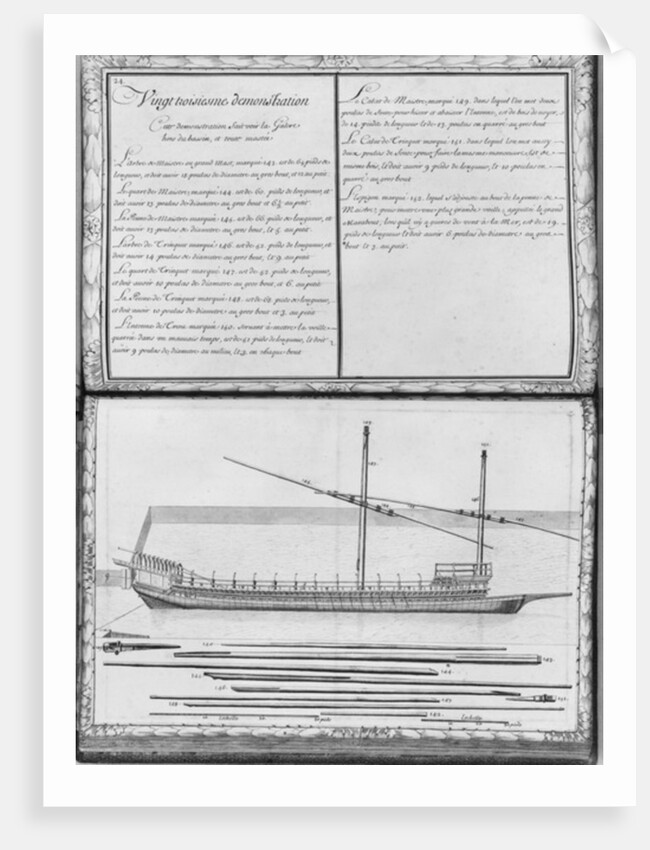 24.
Vingt troisiesme demonstration
Cette demonstration fait voir la Galere
hors du bassin, et toute mastée
L'arbre de Maistre ou grand Mast, marqué 143. est de 64 pieds de
longueur, et doit avoir 18 poulces de diametre au gros bout, et 12 au petit.
Le quart de Maistre, marqué 144. est de 60. pieds de longueur, et
doit avoir 13 poulces de diametre au gros bout et 6½ au petit.
La Penne de Maistre marquée 145. est de 66 pieds de longueur, et
doit avoir 13 poulces de diametre au gros bout, et 5. au petit.
L'arbre de Trinquet marqué 146. est de 42 pieds de longueur, et
doit avoir 14 poulces de diametre au gros bout, et 9. au petit
Le quart de Trinquet marqué 147. est de 42 pieds de longueur,
et doit avoir 10 poulces de diametre au gros bout, et 6. au petit.
La Penne de Trinquet marquée 148. est de 48. pieds de longueur,
et doit avoir 10 poulces de diametre au gros bout et 3. au petit
L'Antenne de marquée 140. servant à mettre la voille
quarrée dans un mauvais temps, est de 42 pieds de longueur, et doit
avoir 9 poulces de diametre au milieu, et 3. en chaque bout
Le Calcet de Maistre, marqué 149. dans lequel l'on met deux
poulies de fonte pour hisser et abaisser l'Antenne, est de bois de noyer,
de 14. pieds de longueur et de 13. poulces en quarré au gros bout
Le Calcet de Trinquet marqué 151. dans lequel l'on met aussy
deux poulies de fonte pour faire la mesme manoeuvre, est de
mesme bois, et doit avoir 9 pieds de longueur, et 10 poulces en
quarré au gros bout
L'espigon marqué 152. lequel s'adjouste au bout de la penne de
Maistre, pour mettre une plus grande voille, appellée le grand
Marabout, lors qu'il n'y a guerre de vent à la Mer, est de 19.
pieds de longueur et doit avoir 6 poulces de diametre au gros
bout et 3. au petit.
149.
151.
143.
146.
145.
144.
143.
144.
145
146.
147
148.
152.
Eschelle
Pieds
Eschelle
Pieds